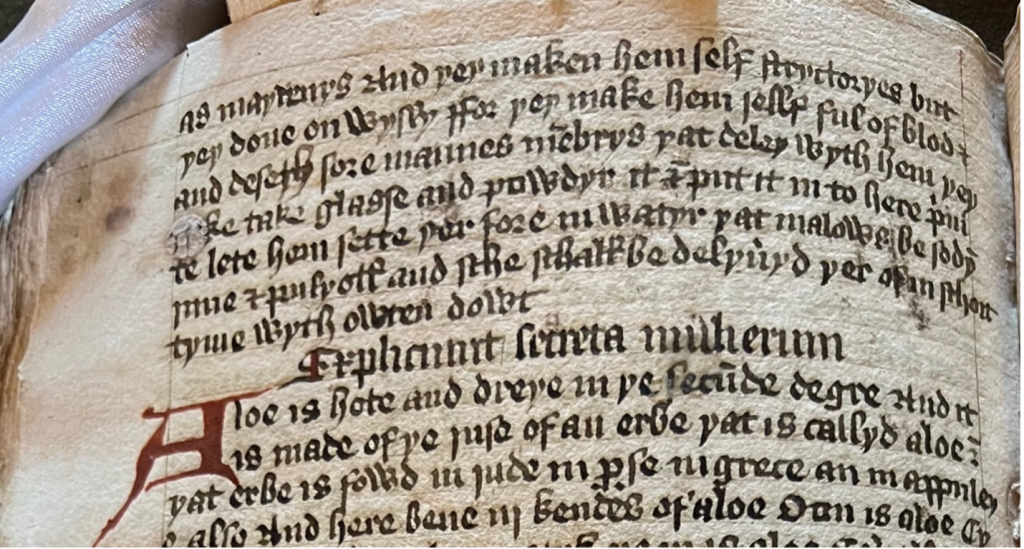 as maydenys And þey maken hem self stryctoryes but
þey done on wysly ffor þey make hem sellf ful of blod ⁊
and deseyfy sore mannes mēbrys þat deley wyth hem þey
ke take glasse and powdyr it ⁊ put it in to here p̄ui
te lete hem sette þer fore in watyr þat malowes be sodȳ
inne ⁊ pulyoll and sche schall be delyūyd þer of in schort
tyme wyth owten dowt
Expliciunt secreta mulierum
Aloe is hote and dreye in þe secūde degre And it
is made of þe juse of an erbe þat is callyd aloe ⁊
þat erbe is fowd in jnde in p̱se in grece an in appule
also And here bene iij kendes of aloe Oon is aloe